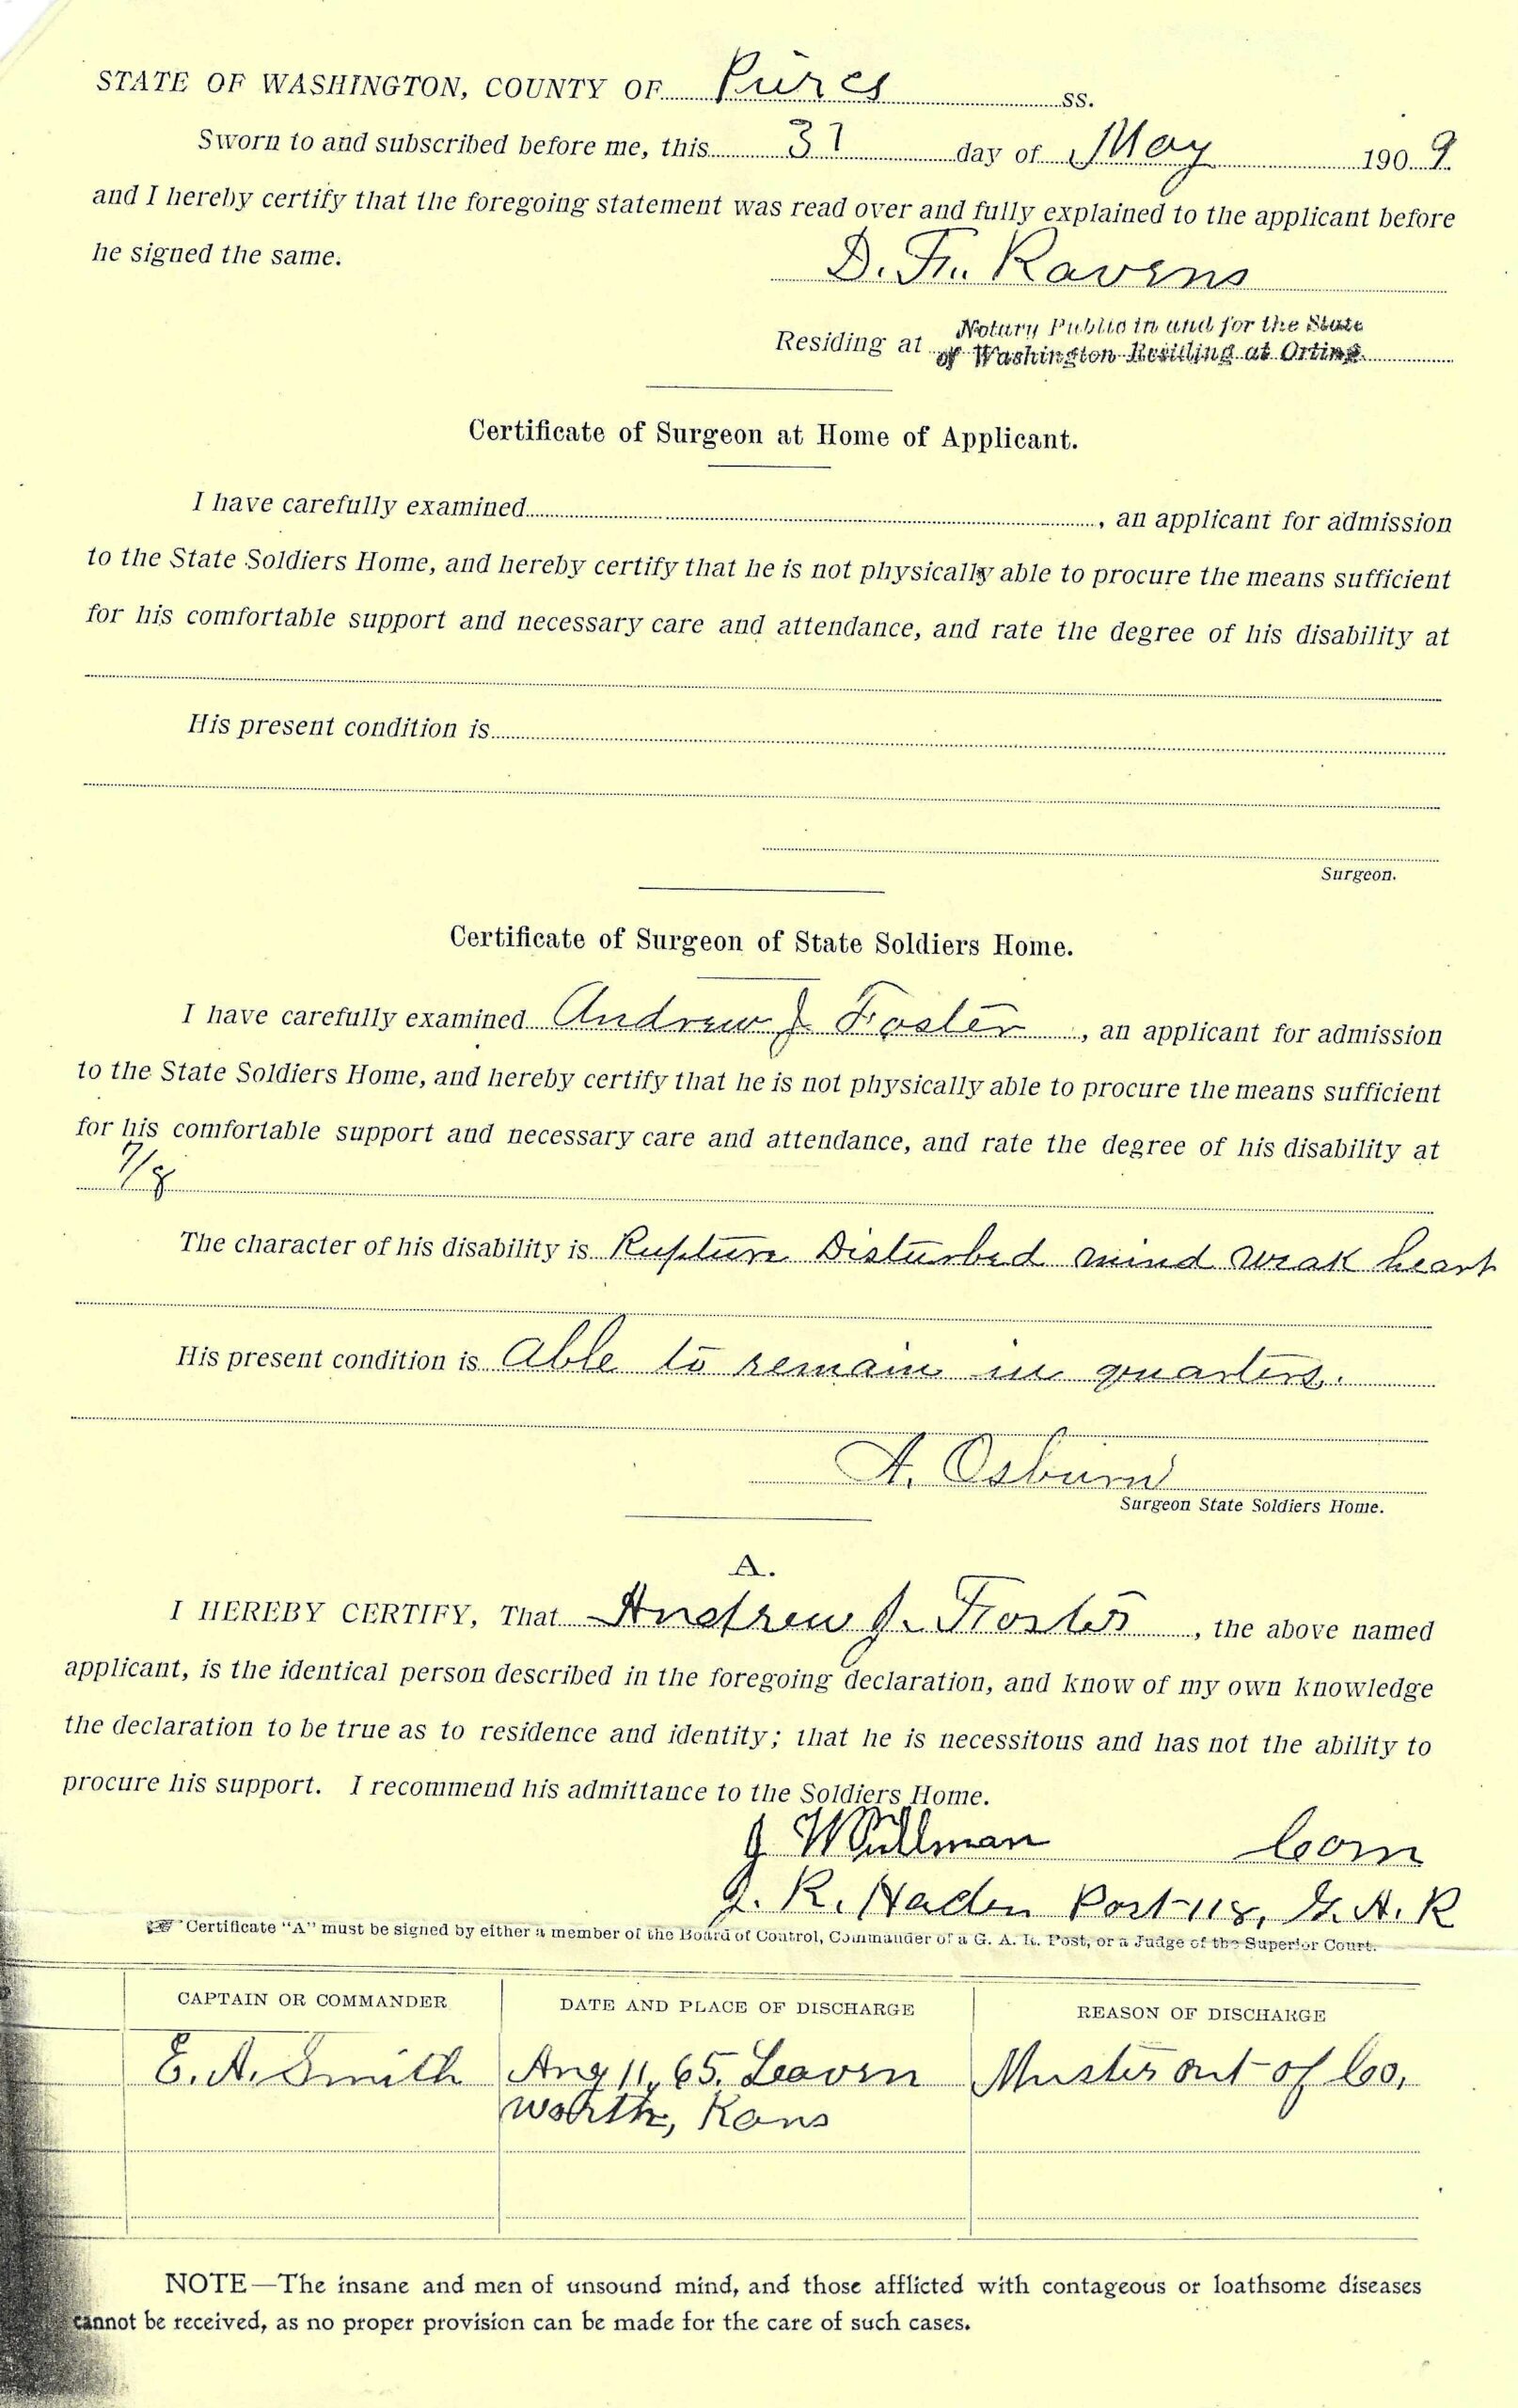 STATE OF WASHINGTON, COUNTY OF Pierce SS.
Sworn to and subscribed before me, this 31 day of May 1909
and I hereby certify that the foregoing statement was read over and fully explained to the applicant before
he signed the same.
D. Fr. Ravens
Notary Public in and for the State
Residing at of Washington Residing at Orting.
Certificate of Surgeon at Home of Applicant.
I have carefully examined , an applicant for admission
to the State Soldiers Home, and hereby certify that he is not physically able to procure the means sufficient
for his comfortable support and necessary care and attendance, and rate the degree of his disability at
His present condition is
Surgeon.
Certificate of Surgeon of State Soldiers Home.
I have carefully examined Andrew J Foster , an applicant for admission
to the State Soldiers Home, and hereby certify that he is not physically able to procure the means sufficient
for his comfortable support and necessary care and attendance, and rate the degree of his disability at
7/8
The character of his disability is Rupture Disturbed mind weak heart
His present condition is Able to remain in quarters.
A. Osburn
Surgeon State Soldiers Home.
A.
I HEREBY CERTIFY, That Andrew J. Foster , the above named
applicant, is the identical person described in the foregoing declaration, and know of my own knowledge
the declaration to be true as to residence and identity; that he is necessitous and has not the ability to
procure his support. I recommend his admittance to the Soldiers Home.
J Com
J. R. Haden Post 118, G. A. R
Certificate "A" must be signed by either a member of the Board of Control, Commander of a G. A. R. Post, or a Judge of the Superior Court.
CAPTAIN OR COMMANDER DATE AND PLACE OF DISCHARGE REASON OF DISCHARGE
E. A. Smith Aug 11, 65. Leaven Muster out of Co,
worth, Kans
NOTE—The insane and men of unsound mind, and those afflicted with contageous or loathsome diseases
cannot be received, as no proper provision can be made for the care of such cases.